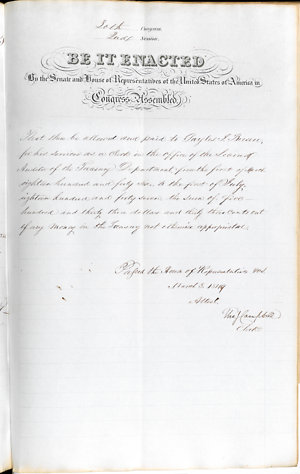 30th Congress
2nd Session
BE IT ENACTED
By the Senate and House of Representatives of the United States of America in
Congress Assembled,
That there be allowed and paid to
for his services as a Clerk in the office of the Second
Auditor of the Treasury Department from the first of
eighteen hundred and forty six to the first of July,
eighteen hundred and forty seven the sum of five
hundred and thirty three dollars and thirty three cents out
of any money in the Treasury not otherwise appropriated.
Passed the House of Representatives
March 3, 1849
Attest.
Tho J Campbell
Clerk